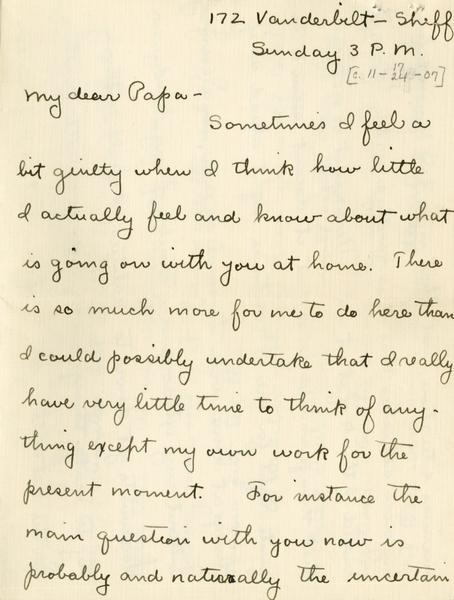 172 Vanderbilt - Sheff
Sunday 3 P.M.
[c. 11-17
24-07]
My dear Papa -
Sometimes I feel a
bit guilty when I think how little
I actually feel and know about what
is going on with you at home. There
is so much more for me to do here than
I could possibly undertake that I really
have very little time to think of any-
thing except my own work for the
present moment. For instance the
main question with you now is
probably and naturally the uncertain